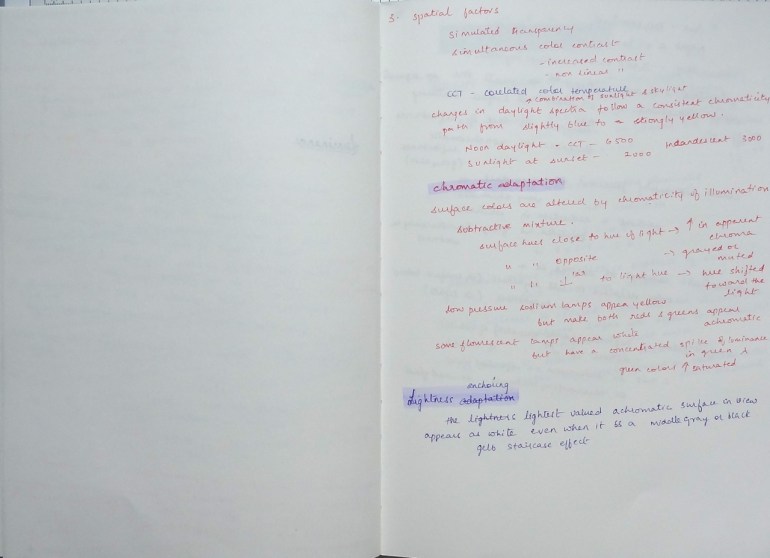 3. spatial factors
simulated transparency
simultaneous color contrast
- increased contrast
- non linear "
CCT - corelated color temperature
→ combination of sunlight & skylight
changes in daylight spectra follow a consistent chromaticity
path from slightly blue to a strongly yellow.
Noon daylight - CCT - 6500 Incandescent 3000
sunlight at sunset - 2000
chromatic adaptation
surface colors are altered by chromaticity of illumination
subtractive mixture.
surface hues close to hue of light → ↑ in apparent
chroma
" " opposite → grayed or
muted
" " ⊥lar to light hue → hue shifted
toward the
light
low pressure sodium lamps appear yellow
but make both reds & greens appear
achromatic
some flourescent lamps appear white
but have a concentrated spike of luminance
in green &
green colors ↑ saturated
anchoring
Lightness adaptation
the lightness lightest valued achromatic surface in view
appears as white even when it is a middle gray or black
gelb staircase effect